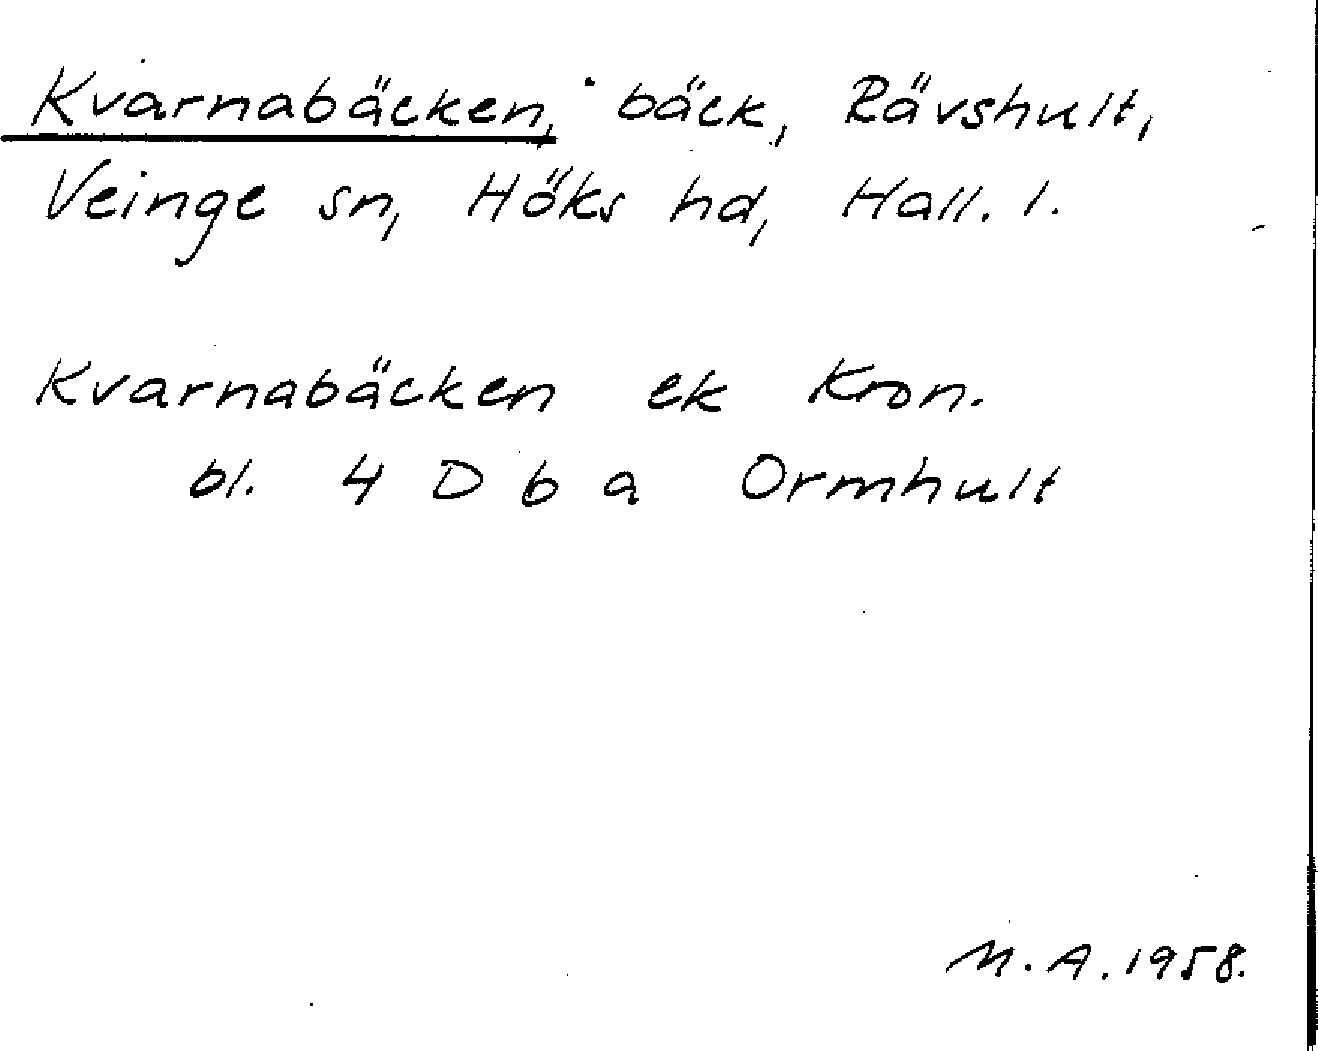 Kvarnabäcken, bäck, Rävshult,
Veinge sn, Höks hd, Hall. l.
Kvarnabäcken ek Kron.
bl. 4 D b a Ormhult
M. A. 1958.